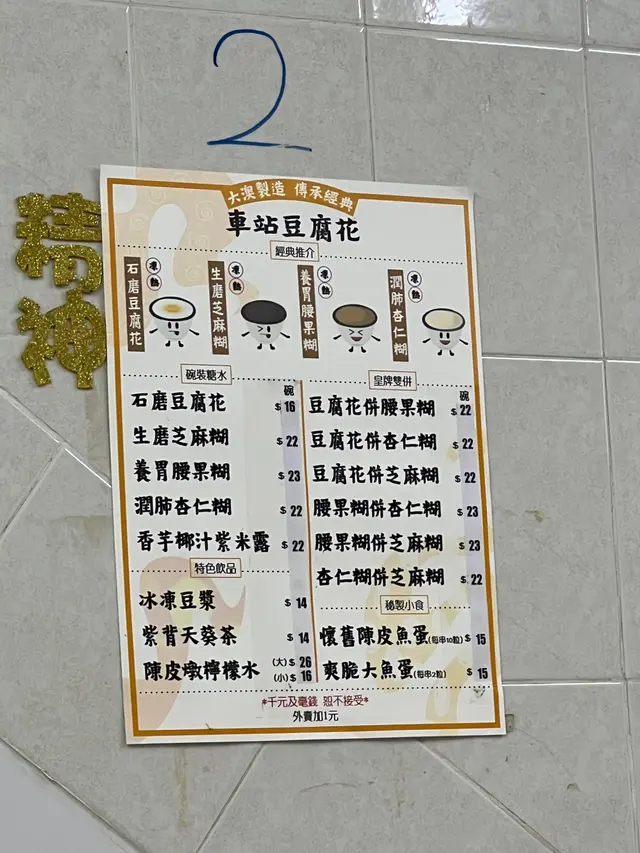 2
精神
大澳製造 傳承經典
車站豆腐花
經典推介
石磨豆腐花 凍 熱
生磨芝麻糊 凍 熱
養胃腰果糊 凍 熱
潤肺杏仁糊 凍 熱
碗裝糖水 碗
石磨豆腐花 $16
生磨芝麻糊 $22
養胃腰果糊 $23
潤肺杏仁糊 $22
香芋椰汁紫米露 $22
特色飲品
冰凍豆漿 $14
紫背天葵茶 $14
陳皮燉檸檬水 (大)$26
(小)$16
皇牌雙併 碗
豆腐花併腰果糊 $22
豆腐花併杏仁糊 $22
豆腐花併芝麻糊 $22
腰果糊併杏仁糊 $23
腰果糊併芝麻糊 $23
杏仁糊併芝麻糊 $22
秘製小食
懷舊陳皮魚蛋(每串10粒) $15
爽脆大魚蛋(每串2粒) $15
*千元及毫錢 恕不接受*
外賣加1元